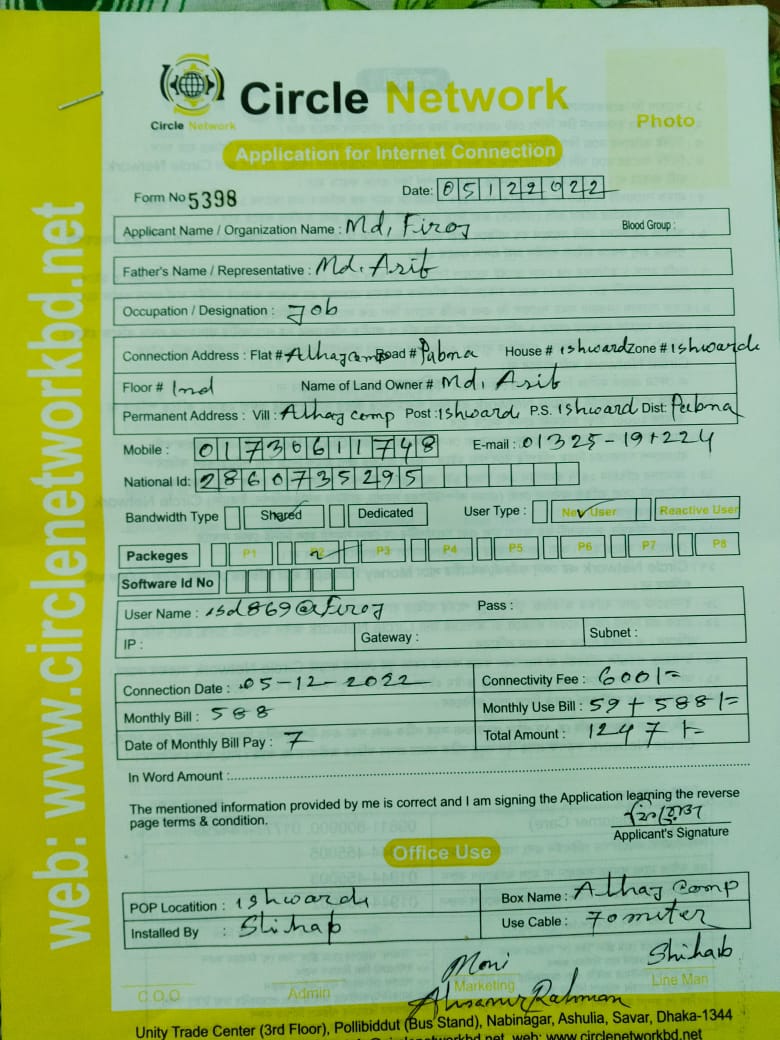 Circle Network
Circle Network
Photo
Application for Internet Connection
Form No 5398
Date: 05122022
Applicant Name / Organization Name : Md, Firoj
Blood Group :
Father's Name / Representative : Md. Asib
Occupation / Designation : Job
Connection Address : Flat # Alhaj camp Road # Pabna House # ishward Zone # ishwarde
Floor # Ind Name of Land Owner # Md, Asib
Permanent Address : Vill : Alhaj comp Post : ishward P.S. ishward Dist: Pabna
Mobile : 01730611748 E-mail : 01325-191224
National Id: 2860735295
Bandwidth Type Shared Dedicated User Type : New User Reactive User
Packeges P1 P2 P3 P4 P5 P6 P7 P8
Software Id No
User Name : isd869@Firoj Pass :
IP : Gateway : Subnet :
Connection Date : 05-12-2022 Connectivity Fee : 600/=
Monthly Bill : 588 Monthly Use Bill : 59 + 588/=
Date of Monthly Bill Pay : 7 Total Amount : 1247/-
In Word Amount :
The mentioned information provided by me is correct and I am signing the Application learning the reverse
page terms & condition.
ফিরোজ
Applicant's Signature
Office Use
POP Locatition : ishwardi Box Name : Alhaj comp
Installed By : Shihab Use Cable : 70 miter
Moni Shihab
C.O.O Admin Marketing Line Man
Ahsanur Rahman
Unity Trade Center (3rd Floor), Pollibiddut (Bus Stand), Nabinagar, Ashulia, Savar, Dhaka-1344
web: www.circlenetworkbd.net
web: www.circlenetworkbd.net